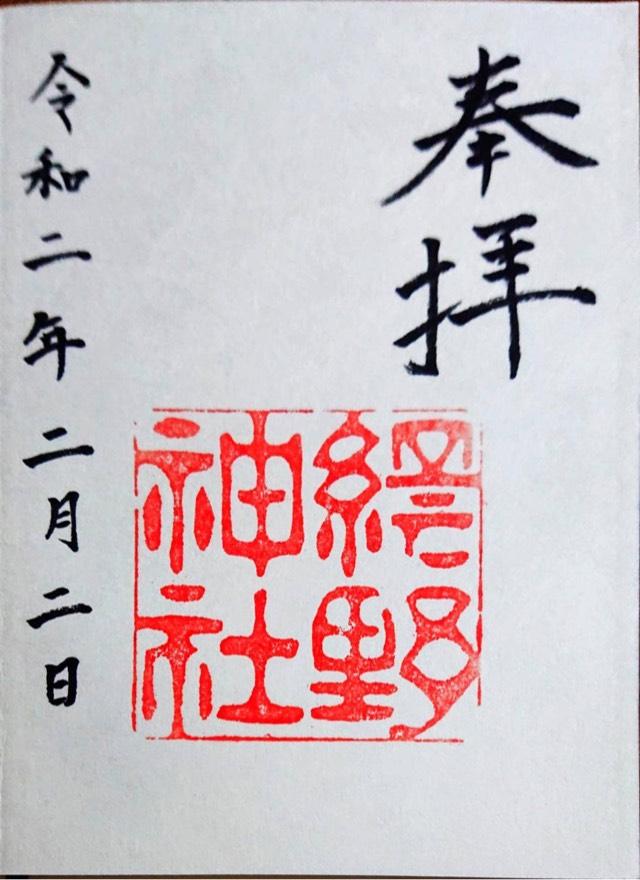 奉拝
終野
神社
令和二年二月二日